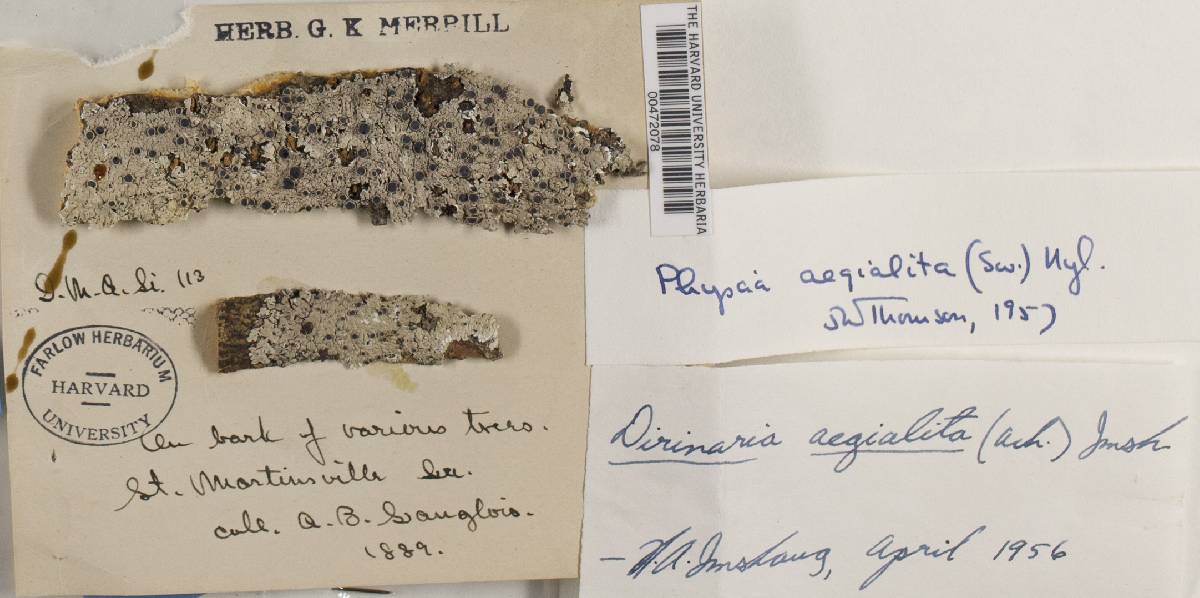 HERB. G. K MERRILL
THE HARVARD UNIVERSITY HERBARIA
00472078
FARLOW HERBARIUM
HARVARD
UNIVERSITY
On bark of various trees.
St. Martinsville La.
coll. A. B. Langlois.
1889.
Physcia aegialita (Sw.) Nyl.
JW Thomson, 1957
Dirinaria aegialita (Ach.) Imsh
— H.A. Imshaug, April 1956